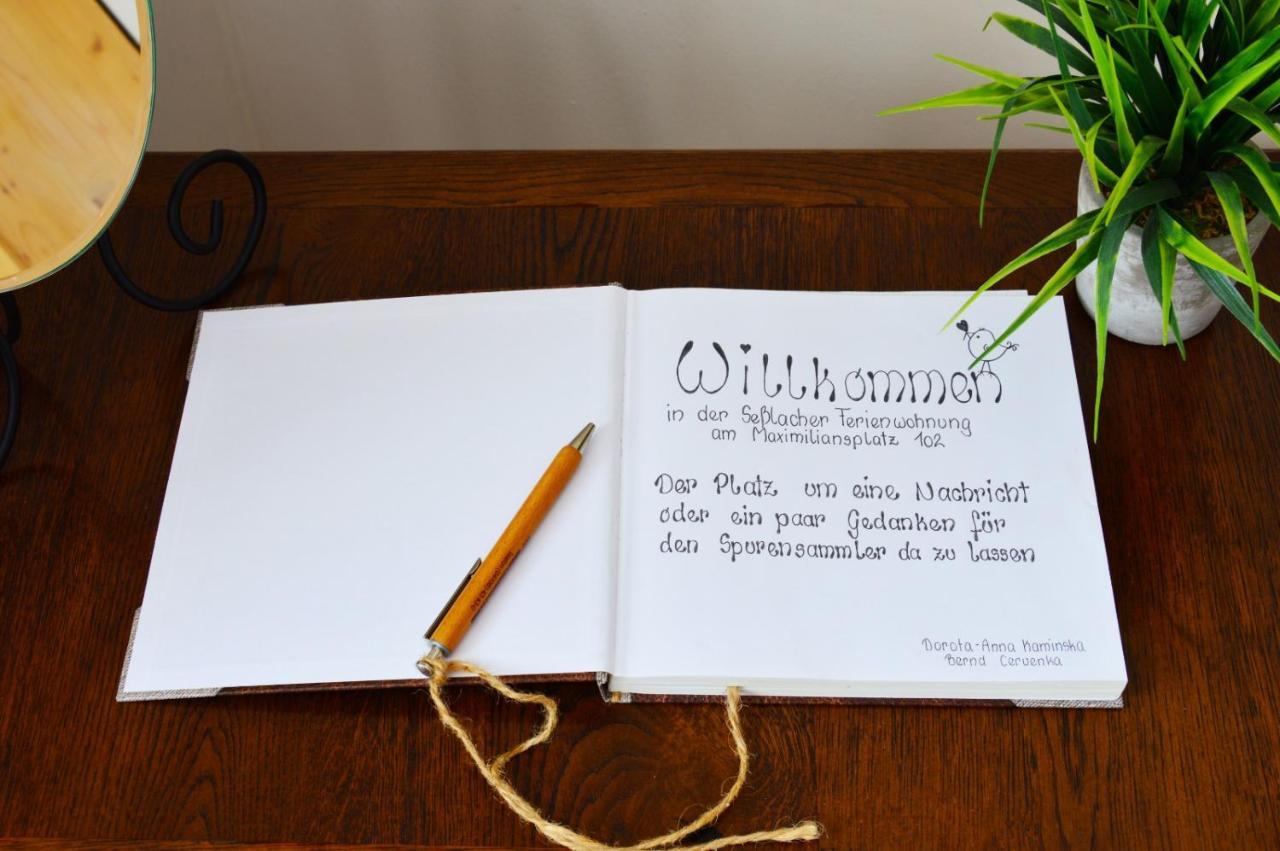 Willkommen
in der Seßlacher Ferienwohnung
am Maximiliansplatz 102
Der Platz um eine Nachricht
oder ein paar Gedanken für
den Spurensammler da zu lassen
Dorota-Anna Kaminska
Bernd Cervenka